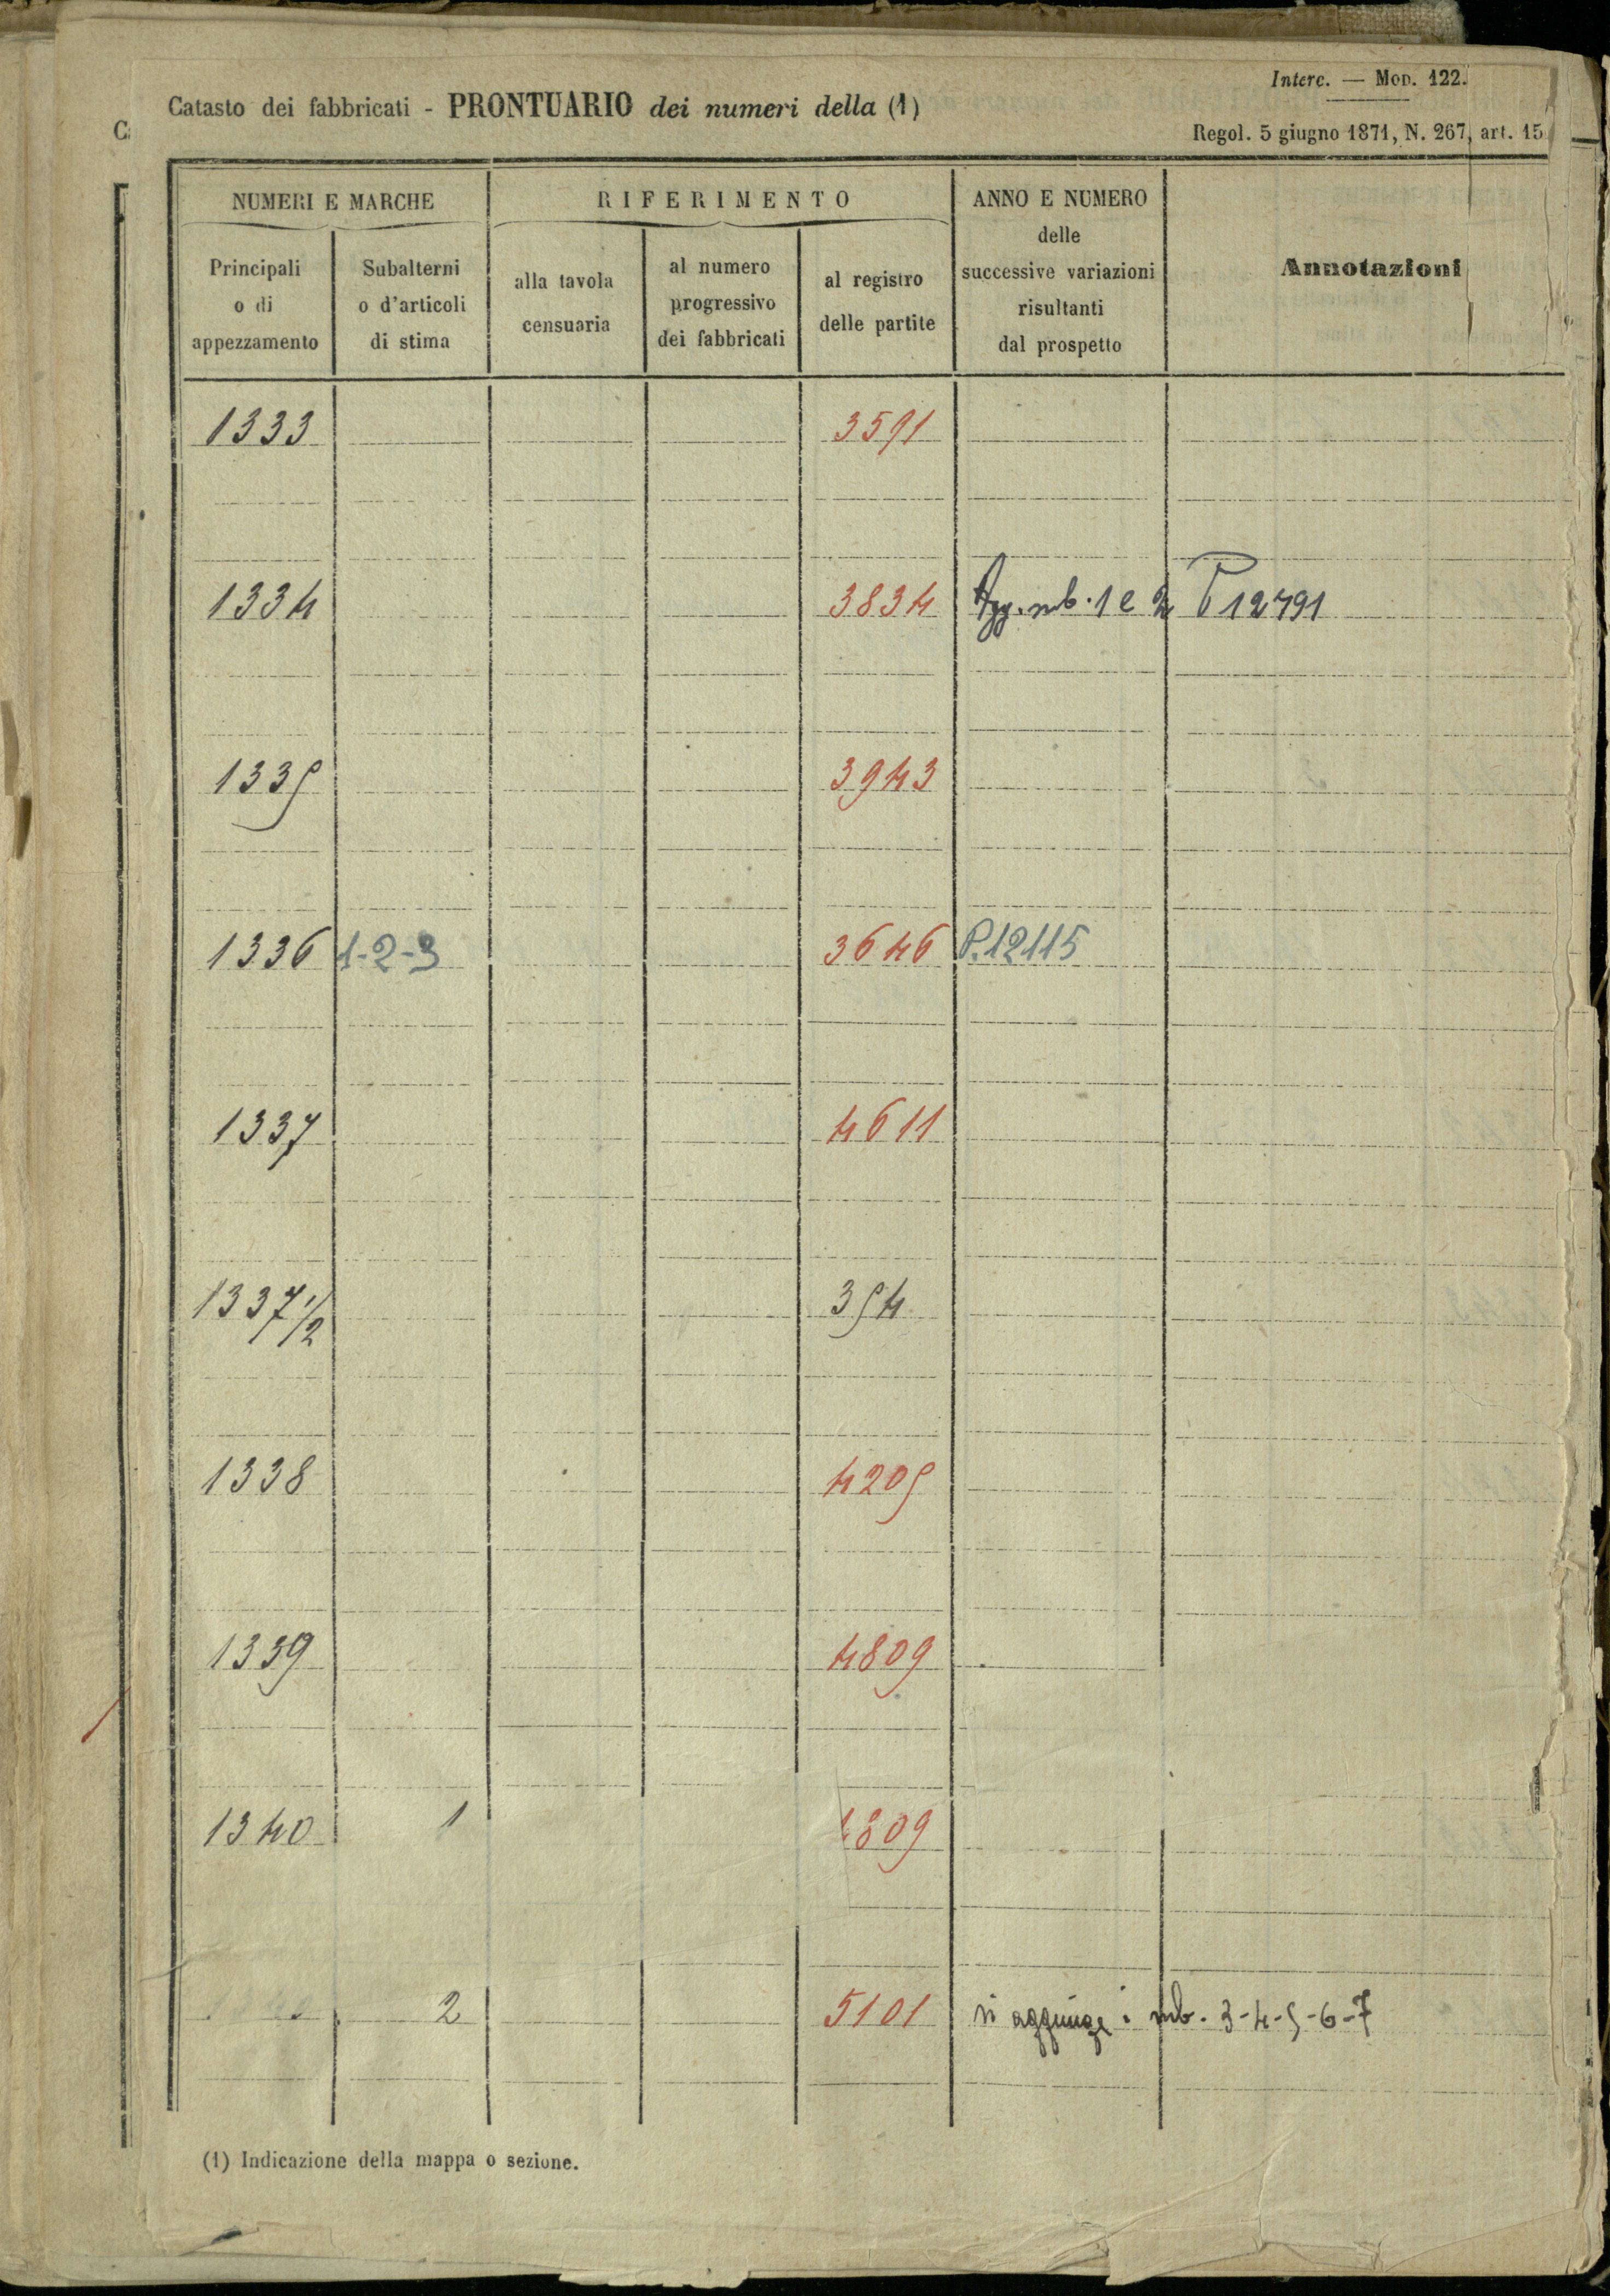 Interc. — Mod. 122.
Catasto dei fabbricati - PRONTUARIO dei numeri della (1)
Regol. 5 giugno 1871, N. 267, art. 15
NUMERI E MARCHE
Principali
o di
appezzamento
Subalterni
o d'articoli
di stima
RIFERIMENTO
alla tavola
censuaria
al numero
progressivo
dei fabbricati
al registro
delle partite
ANNO E NUMERO
delle
successive variazioni
risultanti
dal prospetto
Annotazioni
1333 3591
1334 3834 Agg. sub. 1 e 2 P 12791
1335 3943
1336 1-2-3 3646 P.12115
1337 4611
1337 1/2 354
1338 4205
1339 4809
1340 1 4809
2 5101 si aggiunge i sub. 3-4-5-6-7
(1) Indicazione della mappa o sezione.